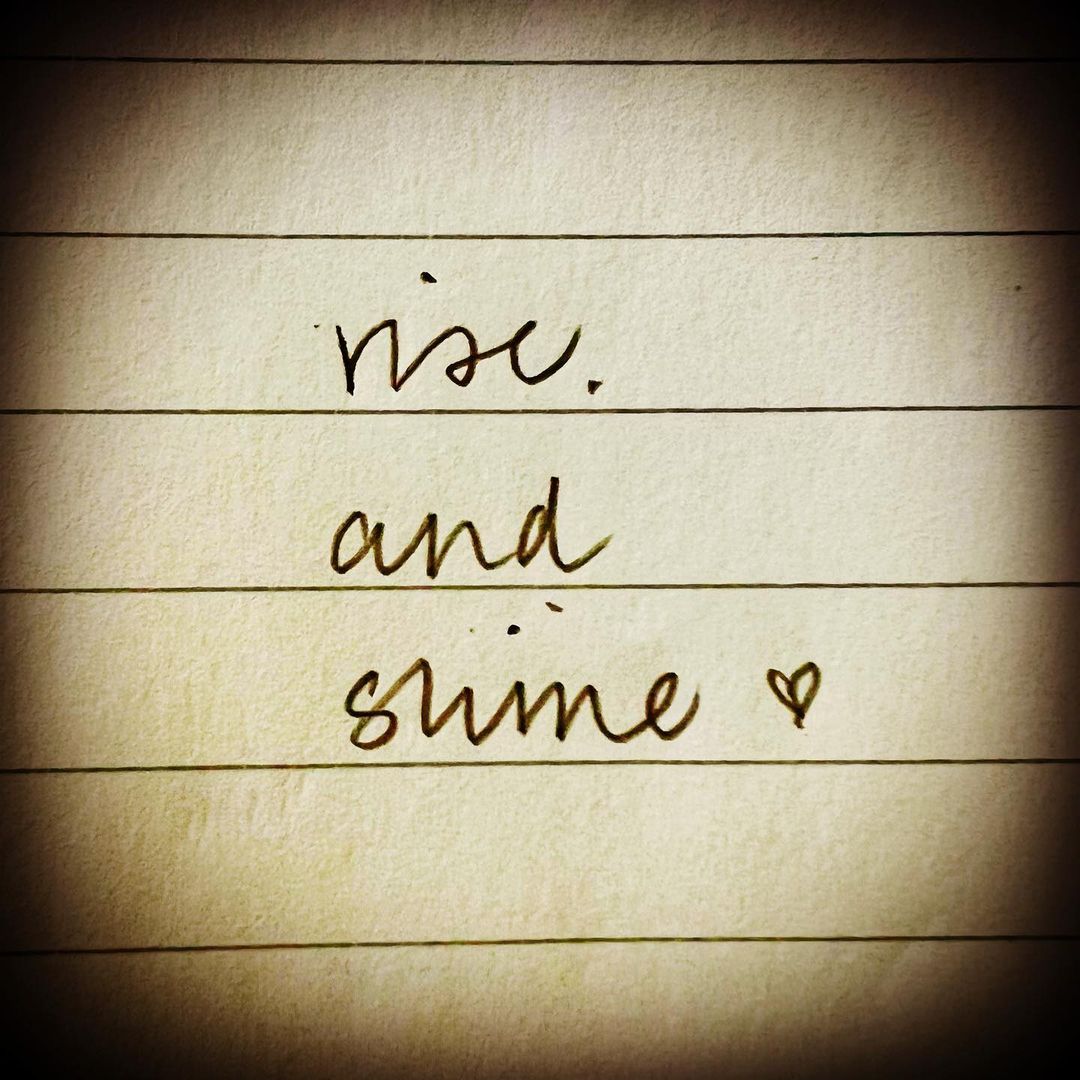 rise.
and
shine ♡